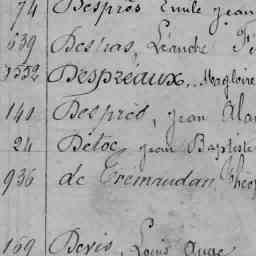 74 Després Emile Jean
639 Despas, Léandre
1552 Despréaux, Magloire
140 Després, Jean Alan
24 Détoc, Jean Baptiste
936 de Trémaudan, Théop
169 Devis, Louis Auge